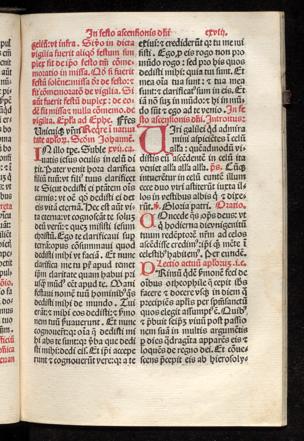 In festo ascensionis dñi
cxviij.
geliũ: vt infra. Si vo in dicta
vigilia fuerit aliqd festum sim
plex: fit de ipo festo tm̃ cõme
moratio in missa. Qd si fuerit
festũ solẽne: missa dr̃ de festo: ⁊
fit cõmemoratõ de vigilia. Si
aũt fuerit festũ duplex: de eo-
dẽ fit missa: ⁊ nulla cõmemo. de
vigilia. Epl'a ad Ephe. fres
Unicuiqʒ vr̃m. Reqre ĩ natiui
tate aplor. Secdm Johannẽ.
IN illo tpe. Suble xvij. ca.
uatis iesus oculis in celũ di
xit. Pater venit hora clarifica
filiũ tuũ: vt filius clarificet te
⁊ Sicut dedisti ei ptãtem oĩs
carnis: vt oẽ qd dedisti ei det
eis vitã eternã. Hec est aũt vi-
ta eterna: vt cognoscãt te solum
deũ verũ: ⁊ quẽ misisti iesum
christũ. Ego te clarificaui sup
terrã: opus cõsummaui quod
dedisti mihi vt faciã. Et nunc
clarifica me tu pr̃ apud temet
ipm̃ claritate quam habui pri
usqʒ mũdꝰ eẽt apud te. Mani
festaui nomẽ tuũ hominibꝰ qs
dedisti mihi de mundo. Tui
erãt: ⁊ mihi eos dedisti: ⁊ ser-
uauerunt. Et nunc
cognouerũt: qr oĩa q dedisti mi
hi abs te sunt: qr vba que dedi
sti mihi: dedi eis. Et ipi accepe
runt ⁊ cognouerũt vere: qr a te
exiui: ⁊ crediderũt qr tu me mi
sisti. Ego p eis rogo non pro
mũdo rogo: sed pro his quos
dedisti mihi: quia tui sunt. Et
mea oĩa tua sunt: ⁊ tua mea
sunt: ⁊ clarificatꝰ sum in eis. Et
iã nõ suʒ in mũdo: ⁊ hi in mũdo
sunt: ⁊ ego ad te venio. In fe
sto ascensionis dñi. Introitus.
UIri galilei qd admira
mini aspiciẽtes ĩ celũ
alla: quẽadmodũ vi
distis eũ ascẽdentẽ in celũ ita
veniet alla alla alla. ps. Cũqʒ
intuerẽtur in celũ euntẽ illum
ecce duo viri astiterũt iuxta il-
los in vestibus albis q ⁊ dixe-
rũt. ℣. Gloria patri. Oratio.
COncede qs op̃s deus: vt
q hodierna die vnigenitũ
tuum redẽptorẽ nr̃m ad celos
ascẽdisse credimꝰ: ipi q mẽte ĩ
celestibꝰ habitemꝰ. Per eundẽ.
Lectio actuũ aplorũ. j. c.
PRimũ qdẽ smonẽ feci de
oĩbus o theophile q cepit ihs
facere ⁊ docere vsqʒ in diem q
precipiẽs aplis per spm̃sanctũ
quos elegit assumptꝰ ẽ. Quibꝰ
⁊ pbuit seipm̃ viuũ post passio
nem suã in multis argumẽtis
p dies qdragĩta apparẽs eis ⁊
loquẽs de regno dei. Et cõue-
scens p̃cepit eis ab hierosoly-